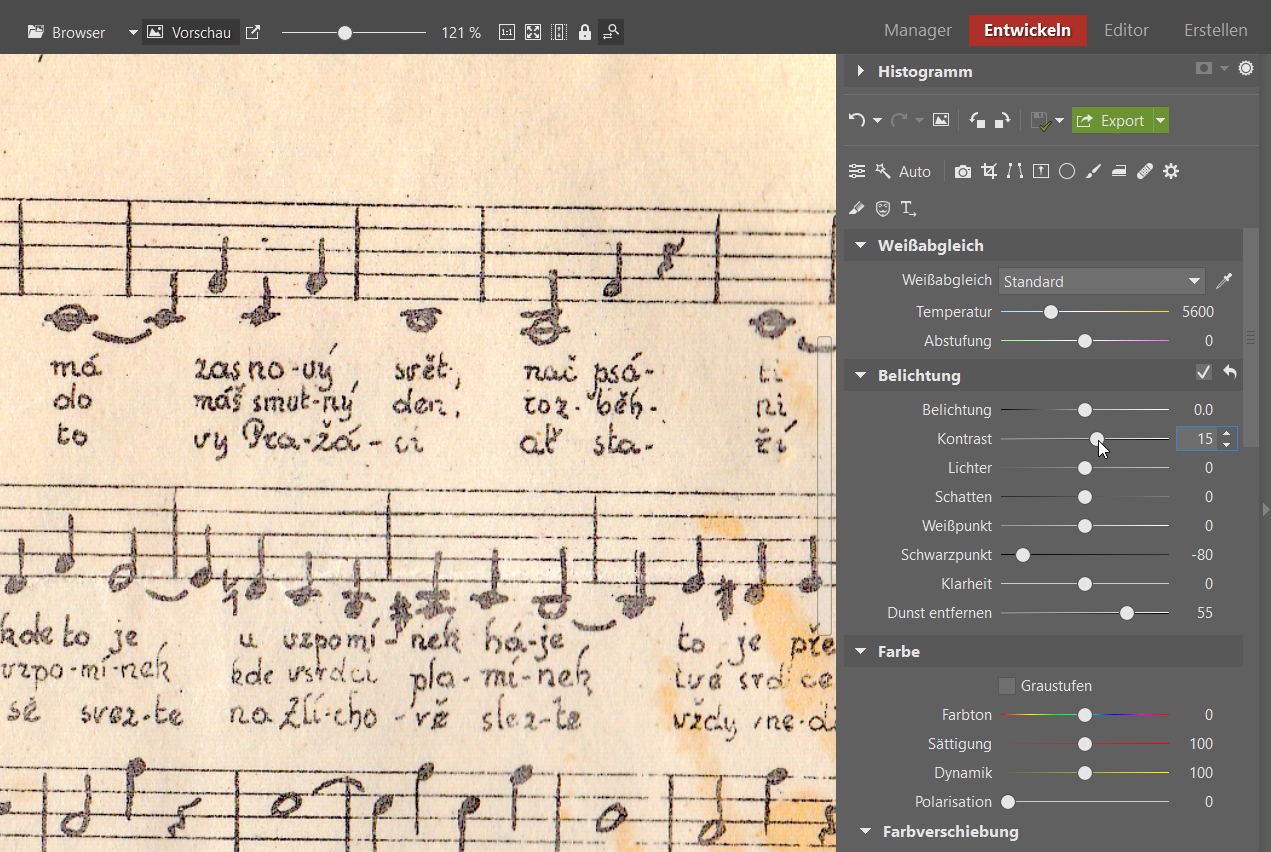 Browser Vorschau 121 % Manager Entwickeln Editor Erstellen
Histogramm
Export
Auto
Weißabgleich
Weißabgleich Standard
Temperatur 5600
Abstufung 0
Belichtung
Belichtung 0.0
Kontrast 15
Lichter 0
Schatten 0
Weißpunkt 0
Schwarzpunkt -80
Klarheit 0
Dunst entfernen 55
Farbe
Graustufen
Farbton 0
Sättigung 100
Dynamik 100
Polarisation 0
Farbverschiebung
má zas no-vý svět, nač psá- ti
do máš smut-ný den, roz-běh- ni
to vy Pra-žá-ci ať sta- ří
kde to je u vzpomí-nek há-je to je pře
vzpo-mí-nek kde vsrdci pla-mí-nek tvé srdce
sé svez-te na Zlí-cho-vě slez-te vždy